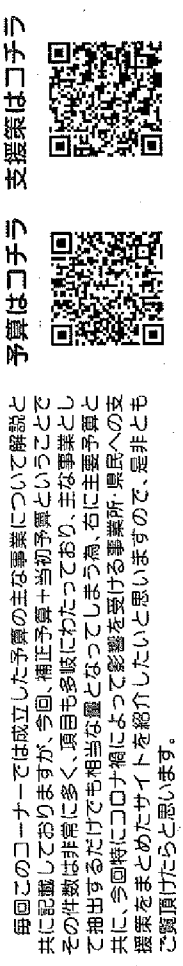 毎回このコーナーでは成立した予算の主な事業について解説と
共に記載しておりますが、今回、補正予算＋当初予算ということで
その件数は非常に多く、項目も多岐にわたっており、主な事業とし
て抽出するだけでも相当な量となってしまう為、右に主要予算と
共に、今回特にコロナ禍によって影響を受ける事業所・県民への支
援策をまとめたサイトを紹介したいと思いますので、是非とも
ご覧頂けたらと思います。
予算はコチラ
支援策はコチラ